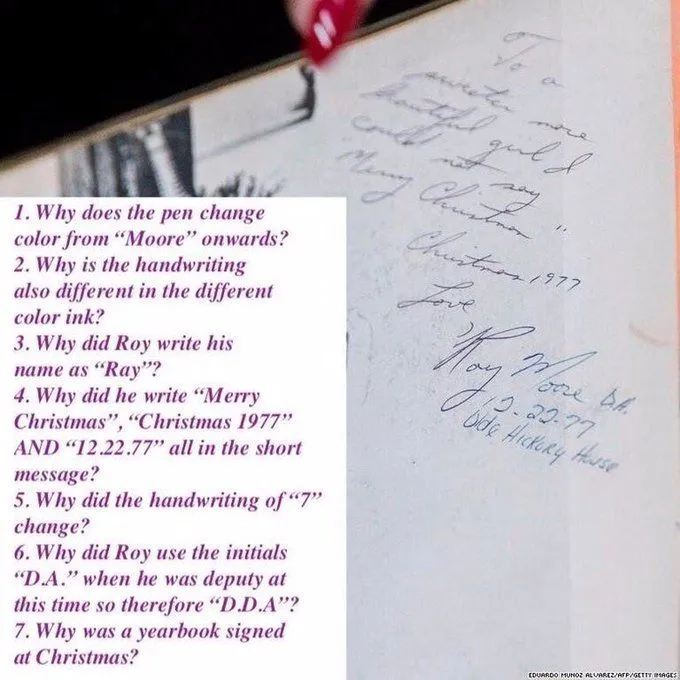 To a
sweeter more
beautiful girl I
could not say
Merry Christmas"
Christmas 1977
Love,
Roy Moore D.A.
12-22-77
Olde Hickory House
1. Why does the pen change
color from “Moore” onwards?
2. Why is the handwriting
also different in the different
color ink?
3. Why did Roy write his
name as “Ray”?
4. Why did he write “Merry
Christmas”, “Christmas 1977”
AND “12.22.77” all in the short
message?
5. Why did the handwriting of “7”
change?
6. Why did Roy use the initials
“D.A.” when he was deputy at
this time so therefore “D.D.A”?
7. Why was a yearbook signed
at Christmas?
EDUARDO MUNOZ ALVAREZ/AFP/GETTY IMAGES